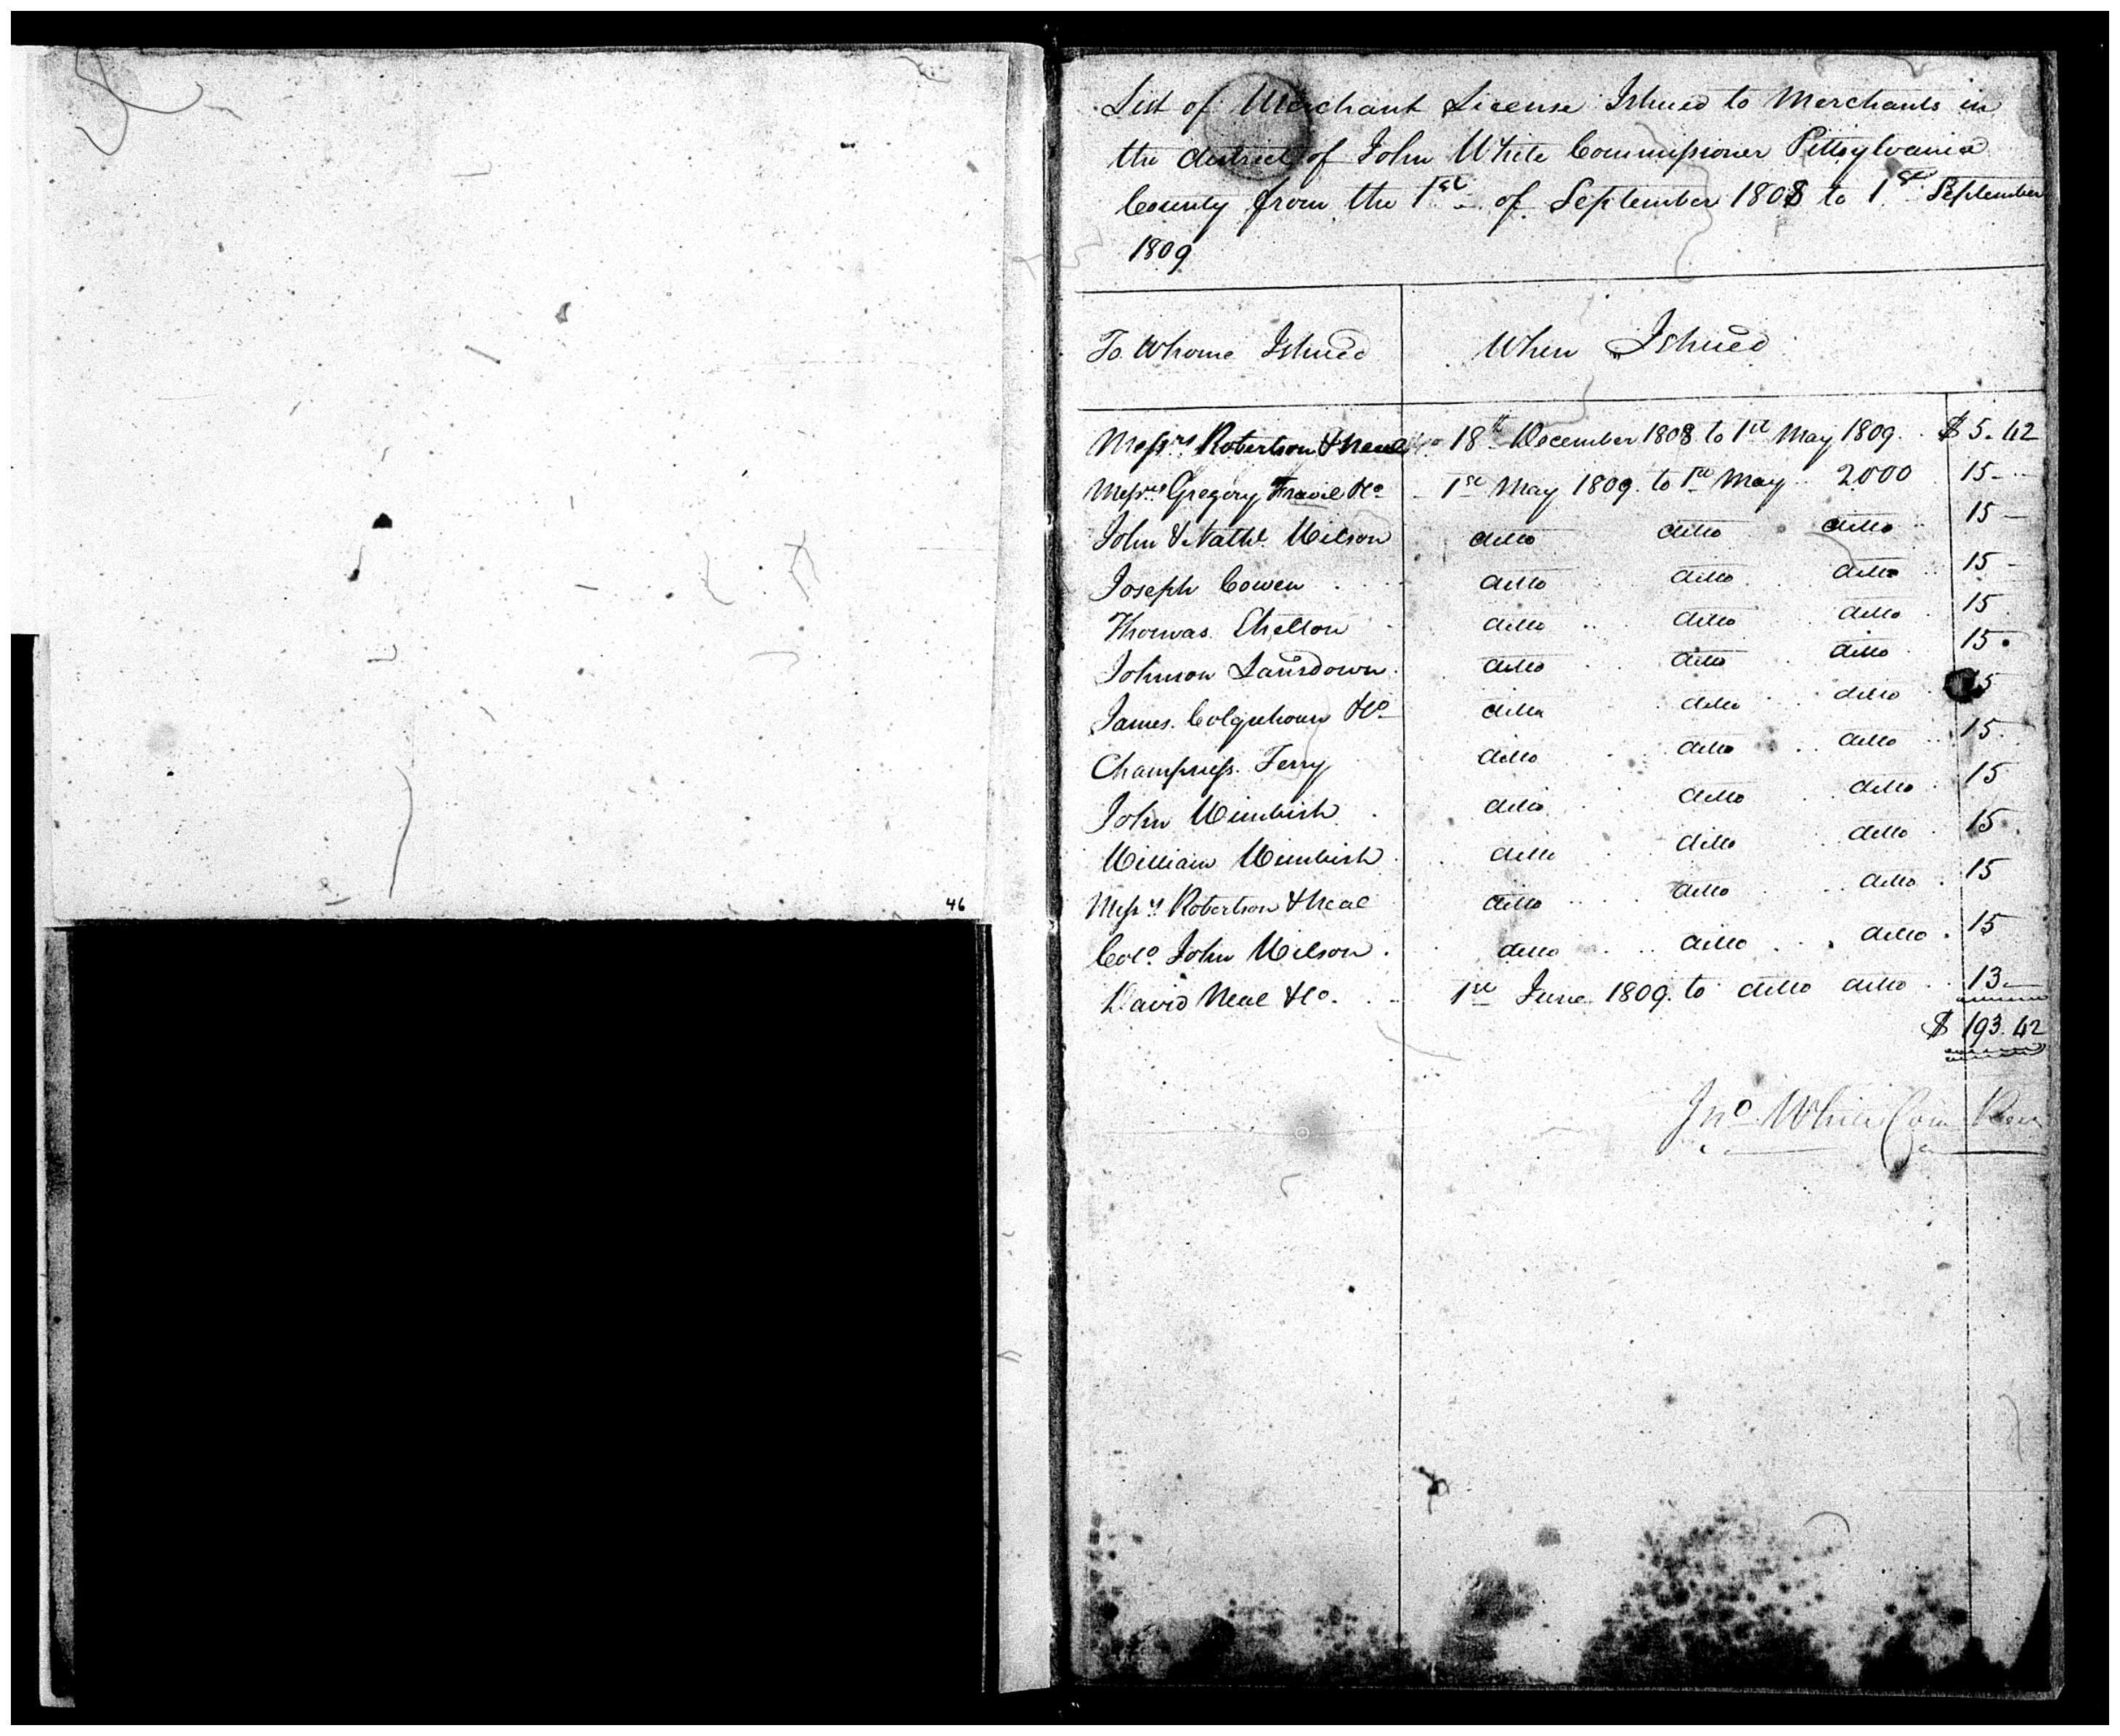 46
List of Merchant License Ishued to Merchants in
the district of John White Commissioner Pittsylvania
County from the 1st of September 1808 to 1st September
1809
To Whome Ishued When Ishued
Messrs Robertson & Neal 18th December 1808 to 1st May 1809 $ 5.42
Messrs Gregory & Co 1st May 1809 to 1st May 2000 15
John & Nathl Wilson ditto ditto ditto 15
Joseph Cowen ditto ditto ditto 15
Thomas Shelton ditto ditto ditto 15
Johnson Lansdown ditto ditto ditto 15
James Colquhoun & Co ditto ditto ditto 15
Champness Terry ditto ditto ditto 15
John Wimbish ditto ditto ditto 15
William Wimbish ditto ditto ditto 15
Messrs Robertson & Neal ditto ditto ditto 15
Colo John Wilson ditto ditto ditto 15
David Neal & Co. 1st June 1809 to ditto ditto 13
$ 193.42
Jno White Com Rev